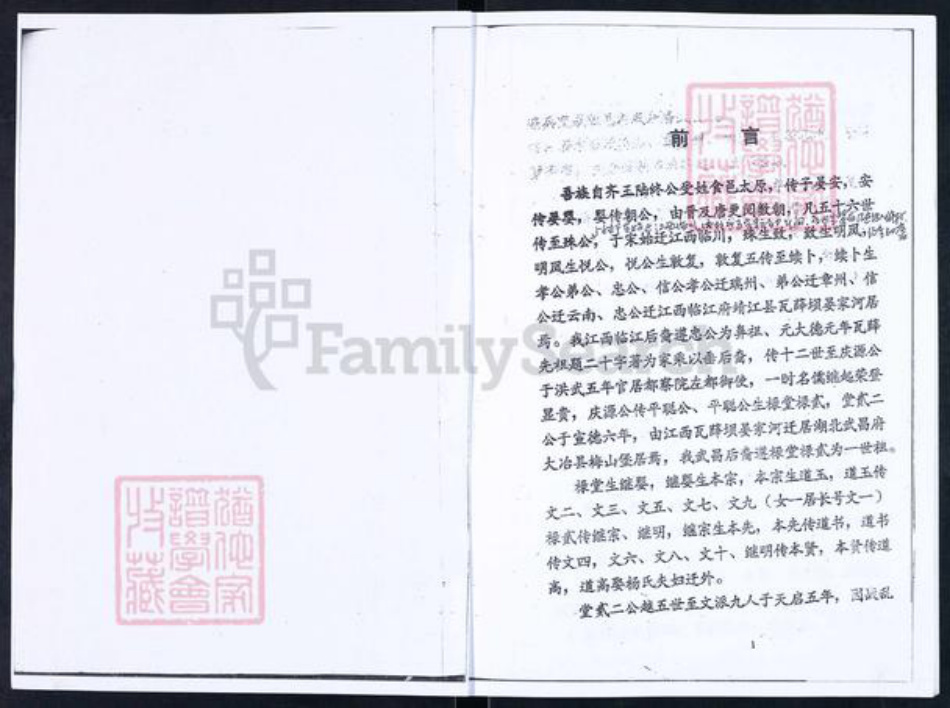 前 言
吾族自齐王陆终公受姓食邑太原，传子晏安，安
传晏婴，婴传朝公，由晋及唐更阅数朝，凡五十六世
传至珠公，于宋始迁江西临川，珠生敦，敦生明凤，
明凤生悦公，悦公生敦复，敦复五传至续卜，续卜生
孝公弟公、忠公、信公孝公迁瑞州、弟公迁章州、信
公迁云南、忠公迁江西临江府靖江县瓦薛坝晏家河居
焉。我江西临江后裔遵忠公为鼻祖、元大德元年瓦薛
先祖题二十字著为家乘以垂后裔，传十二世至庆源公
于洪武五年官居都察院左都御使，一时名儒继起荣登
显贵，庆源公传平聪公、平聪公生禄堂禄贰，堂贰二
公于宣德六年，由江西瓦薛坝晏家河迁居湖北武昌府
大冶县梅山堡居焉，我武昌后裔遵禄堂禄贰为一世祖。
禄堂生继婴，继婴生本宗，本宗生道玉，道玉传
文二、文三、文五、文七、文九（女一居长号文一）
禄贰传继宗、继明，继宗生本先，本先传道书，道书
传文四，文六、文八、文十、继明传本贤，本贤传道
高，道高娶杨氏夫妇迁外。
堂贰二公越五世至文派九人于天启五年，因 乱
1
FamilySearch
谱学会
收藏
谱学会
收藏